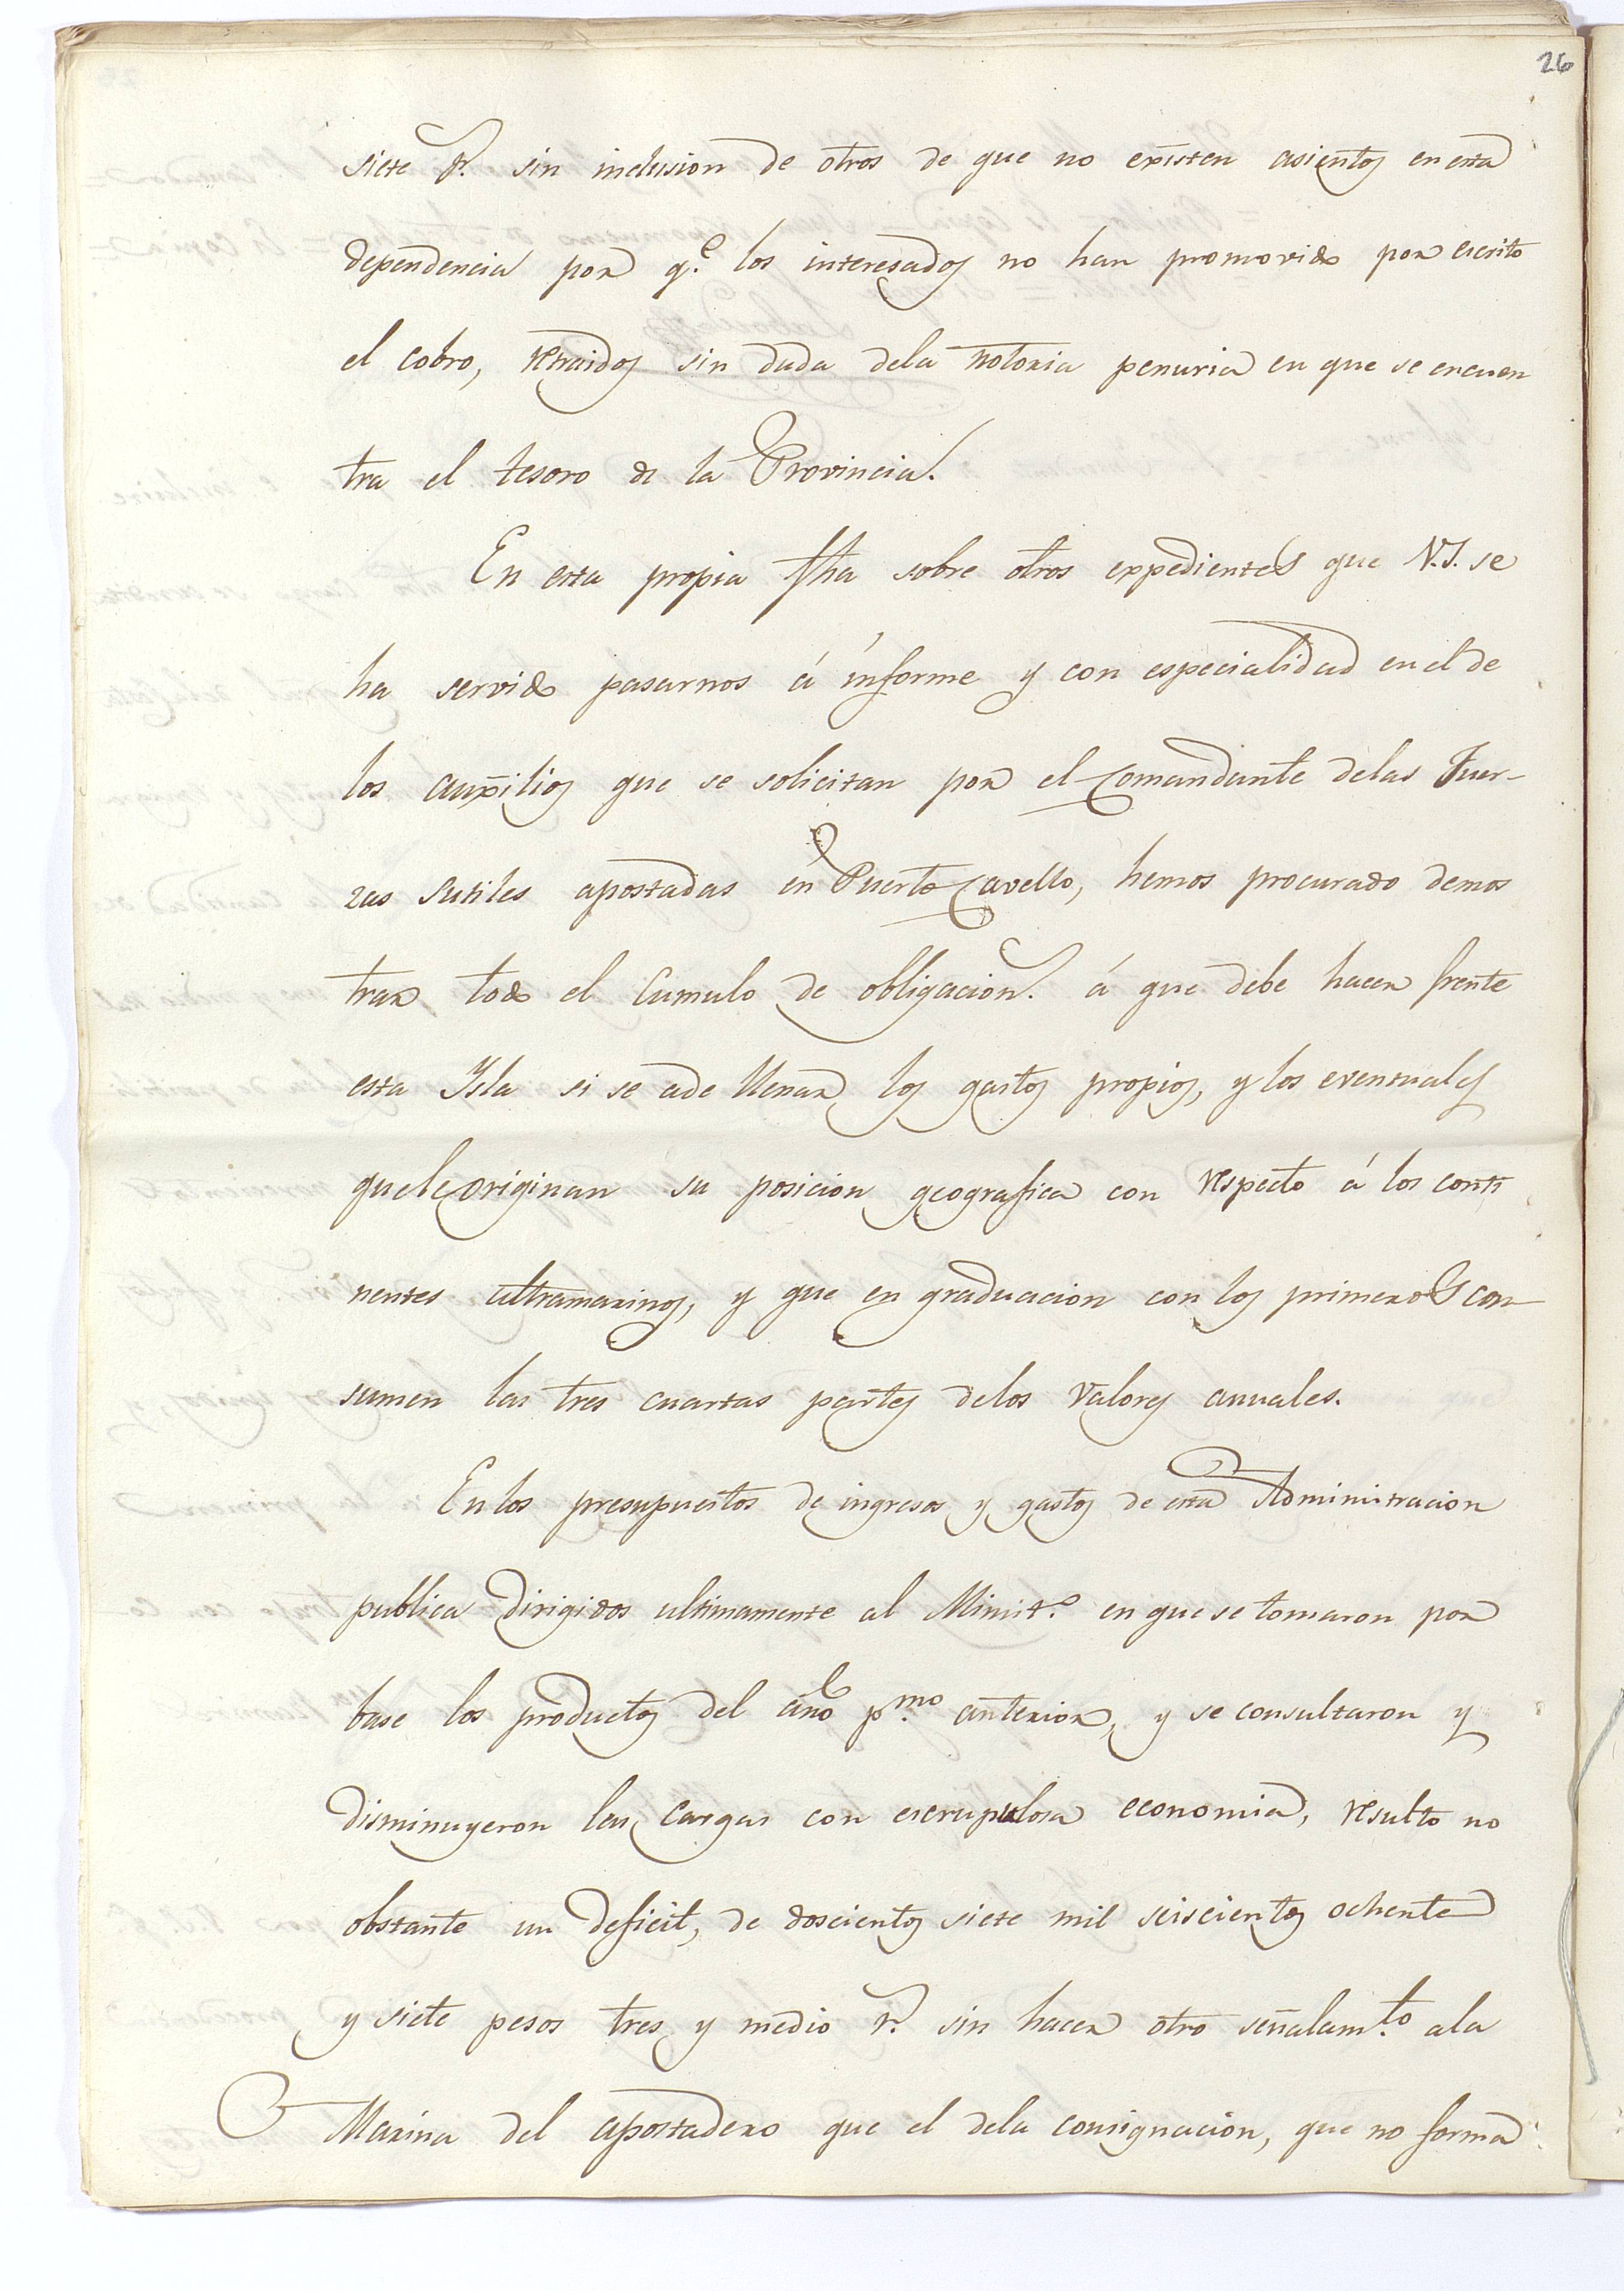 26
siete r.ˢ sin inclusion de otros de que no existen asientos en esta
dependencia por q.ᵉ los interesados no han promovido por escrito
el cobro, retraidos sin duda dela notoria penuria en que se encuen
tra el tesoro de la Provincia.
En esta propia fha sobre otros expedientes que V.S. se
ha servido pasarnos á informe y con especialidad en el de
los auxilios que se solicitan por el Comandante delas Fuer-
zas sutiles apostadas en Puerto Cavello, hemos procurado demos
trar todo el Cumulo de obligacion.ˢ á que debe hacer frente
esta Ysla si se ade llenar los gastos propios, y los eventuales
quele originan su posicion geografica con respecto á los conti
nentes ultramarinos, y que en graduacion con los primeros con-
sumen las tres cuartas partes delos valores anuales.
En los presupuestos de ingresos y gastos de esta Administracion
publica dirigidos ultimamente al Minist.º en que se tomaron por
base los productos del año p.ᵐᵒ anterior, y se consultaron y
disminuyeron las cargas con escrupulosa economia, resulto no
obstante un deficit, de doscientos siete mil seiscientos ochenta
y siete pesos tres y medio r.ˢ sin hacer otro señalam.ᵗᵒ ala
Marina del apostadero que el dela consignacion, que no forma